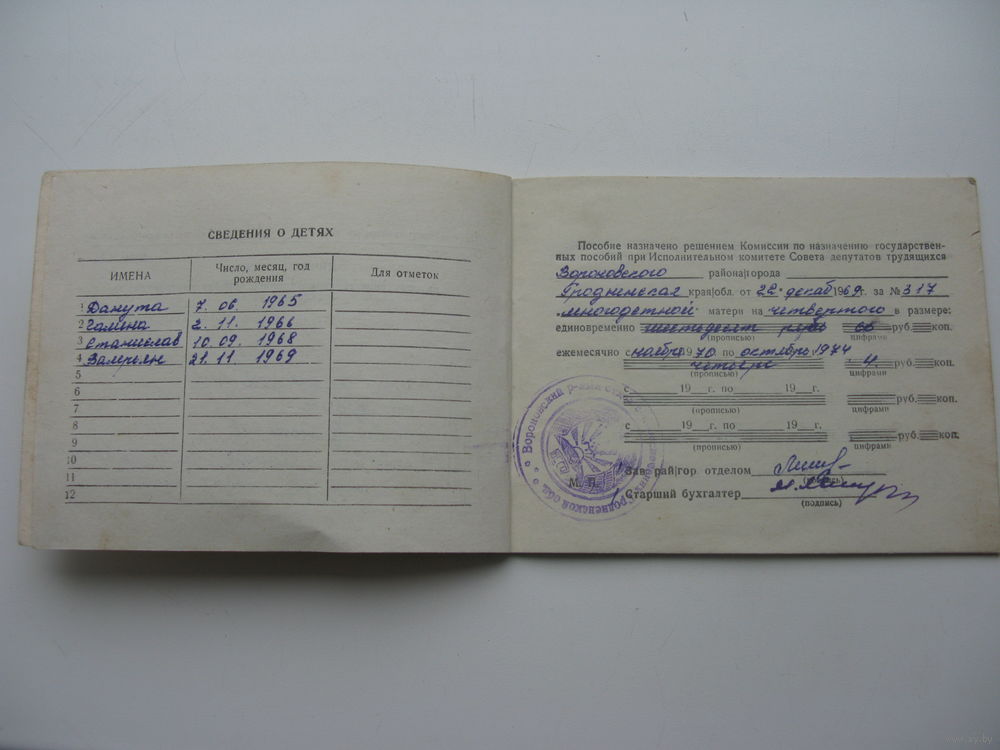 СВЕДЕНИЯ О ДЕТЯХ
ИМЕНА Число, месяц, год рождения Для отметок
1 Данута 7. 06. 1965
2 Галина 2. 11. 1966
3 Станислав 10. 09. 1968
4 21. 11 1969
5
6
7
8
9
10
11
12
Пособие назначено решением Комиссии по назначению государствен-
ных пособий при Исполнительном комитете Совета депутатов трудящихся
Вороновского района|города
Гродненская края|обл. от 22 декаб 1969г. за № 317
многодетной матери на четвертого в размере:
единовременно шестьдесят руб 66 руб. коп.
(прописью) цифрами
ежемесячно с ноября 1970 по октябрь 1974
четыре 4 руб. коп.
(прописью) цифрами
с 19 г. по 19 г.
руб. коп.
(прописью) цифрами
с 19 г. по 19 г.
руб. коп.
(прописью) цифрами
Зав рай|гор отделом
М. П. (подпись)
Старший бухгалтер
(подпись)
Вороновский Гродненской обл.
www.ay.by